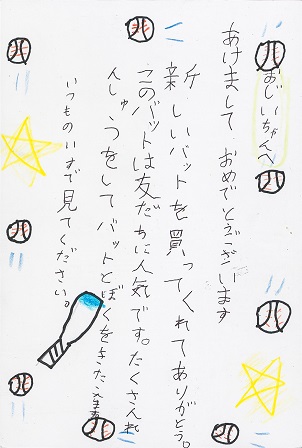 おじいちゃんへ
あけまして おめでとうございます
新しいバットを買ってくれてありがとう。
このバットは友だちに人気です。たくさんれ
んしゅうをしてバットとぼくをきたえます
いつものいすで見てください。